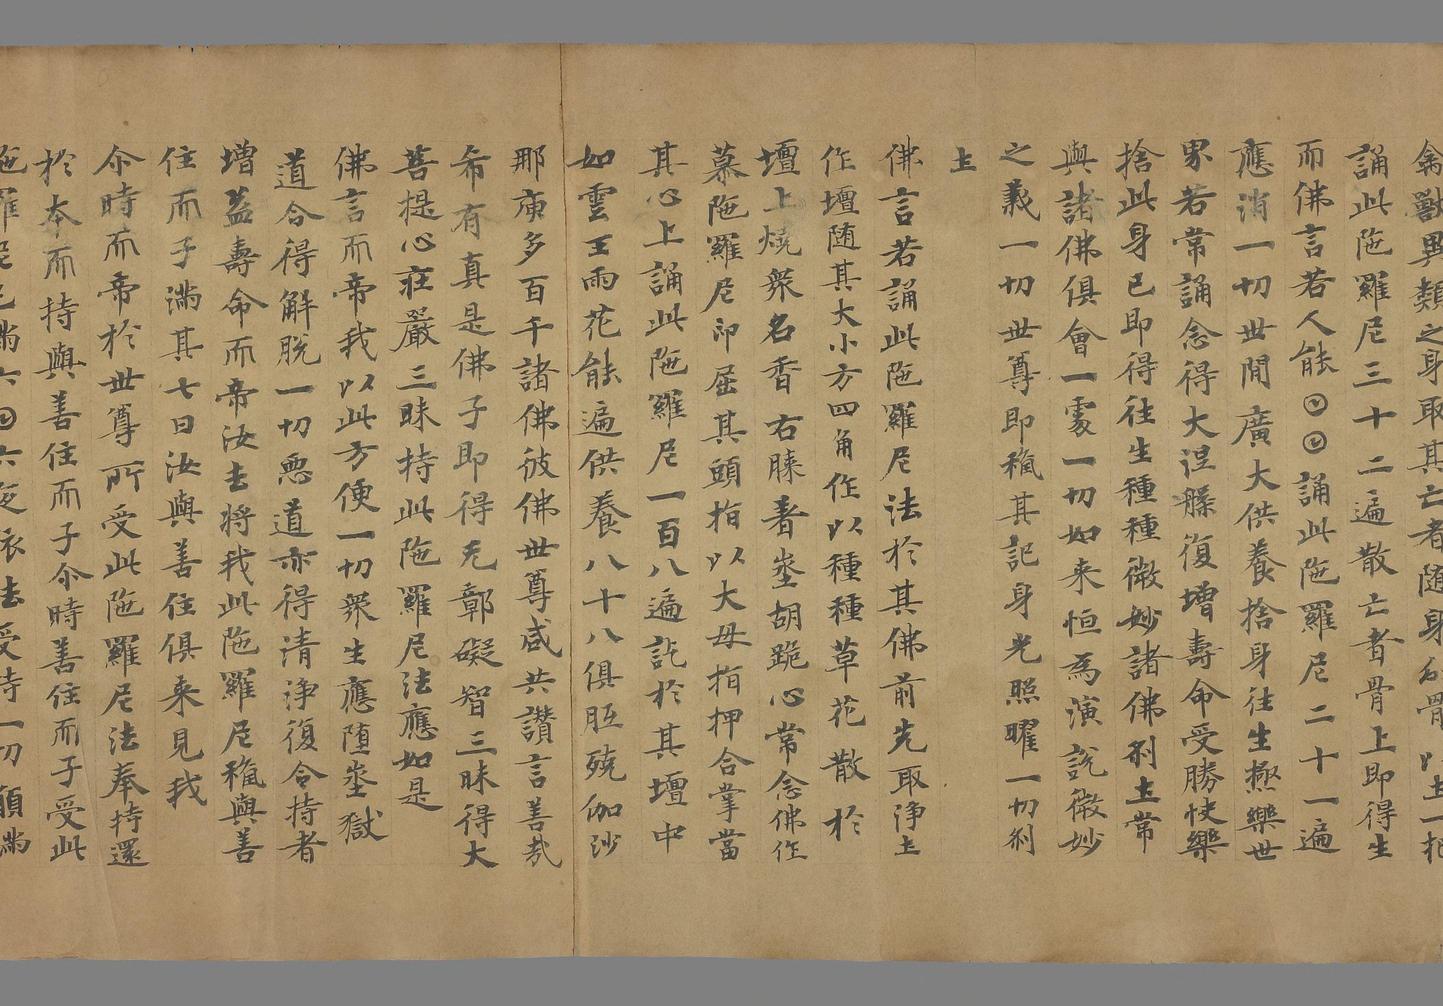 禽獸異類之身取其亡者随身分骨以土一把
誦此陁羅尼三十二遍散亡者骨上即得生
而佛言若人能誦此陁羅尼二十一遍
應消一切世間廣大供養捨身往生極樂世
界若常誦念得大涅槃復增壽命受勝快樂
捨此身已即得往生種種微妙諸佛刹土常
與諸佛俱會一處一切如来恒為演說微妙
之義一切世尊即稱其記身光照曜一切刹
土
佛言若誦此陁羅尼法於其佛前先取淨土
作壇随其大小方四角作以種種草花散於
壇上燒衆名香右膝著埊胡跪心常念佛作
慕陁羅尼印屈其頭指以大母指押合掌當
其心上誦此陁羅尼一百八遍訖於其壇中
如雲王雨花能遍供養八十八俱胝殑伽沙
那庾多百千諸佛彼佛世尊咸共讚言善哉
希有真是佛子即得无鄣礙智三昧得大
菩提心莊嚴三昧持此陁羅尼法應如是
佛言而帝我以此方便一切衆生應堕埊獄
道令得解脫一切惡道亦得清淨復令持者
增益壽命而帝汝去将我此陁羅尼稱與善
住而子滿其七日汝與善住俱来見我
尒時而帝於世尊所受此陁羅尼法奉持還
於本而持與善住而子尒時善住而子受此
陁羅尼已滿六六夜依法受持一切願滿